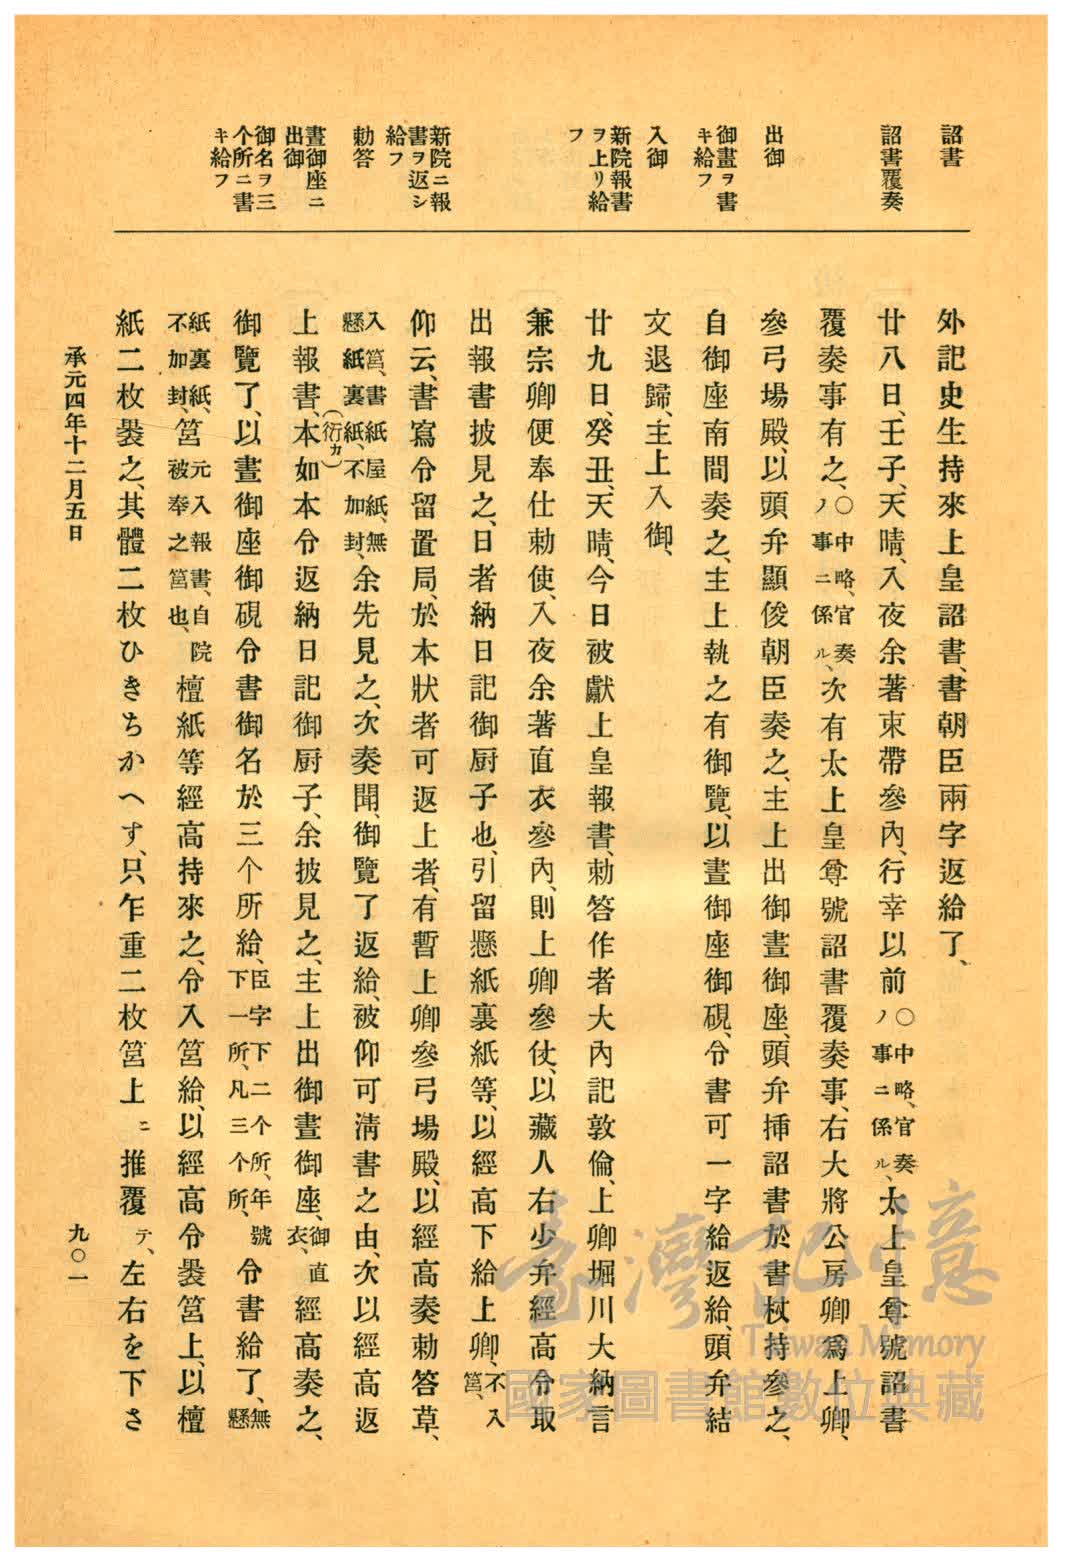 詔書
詔書覆奏
出御
御畫ヲ書
キ給フ
入御
新院報書
ヲ上リ給
フ
新院ニ報
書ヲ返シ
給フ
勅答
晝御座ニ
出御
御名ヲ三
个所ニ書
キ給フ
外記史生持來上皇詔書、書朝臣兩字返給了、
廿八日、壬子、天晴、入夜余著束帶參內、行幸以前〇中略、官奏ノ事ニ係ル、太上皇尊號詔書
覆奏事有之、〇中略、官奏ノ事ニ係ル、次有太上皇尊號詔書覆奏事、右大將公房卿爲上卿、
參弓場殿、以頭弁顯俊朝臣奏之、主上出御晝御座、頭弁挿詔書於書杖持參之、
自御座南間奏之、主上執之有御覽、以晝御座御硯、令書可一字給返給、頭弁結
文退歸、主上入御、
廿九日、癸丑、天晴、今日被獻上皇報書、勅答作者大內記敦倫、上卿堀川大納言
兼宗卿便奉仕勅使、入夜余著直衣參內、則上卿參仗、以藏人右少弁經高令取
出報書披見之、日者納日記御厨子也、引留懸紙裏紙等、以經高下給上卿、不入筥、
仰云、書寫令留置局、於本狀者可返上者、有暫上卿參弓場殿、以經高奏勅答草、
入筥、書紙屋紙、無懸紙裏紙、不加封、余先見之、次奏聞、御覽了返給、被仰可淸書之由、次以經高返
上報書、本(衍カ)如本令返納日記御厨子、余披見之、主上出御晝御座、御直衣、經高奏之、
御覽了、以晝御座御硯令書御名於三个所給、臣字下二个所、年號下一所、凡三个所、令書給了、無懸
紙裏紙、不加封、筥元入報書、自院被奉之筥也、檀紙等經高持來之、令入筥給、以經高令褁筥上、以檀
紙二枚褁之、其體二枚ひきちかへす、只乍重二枚筥上ニ推覆テ、左右を下さ
承元四年十二月五日
九〇一
臺灣記憶
Taiwan Memory
國家圖書館數位典藏